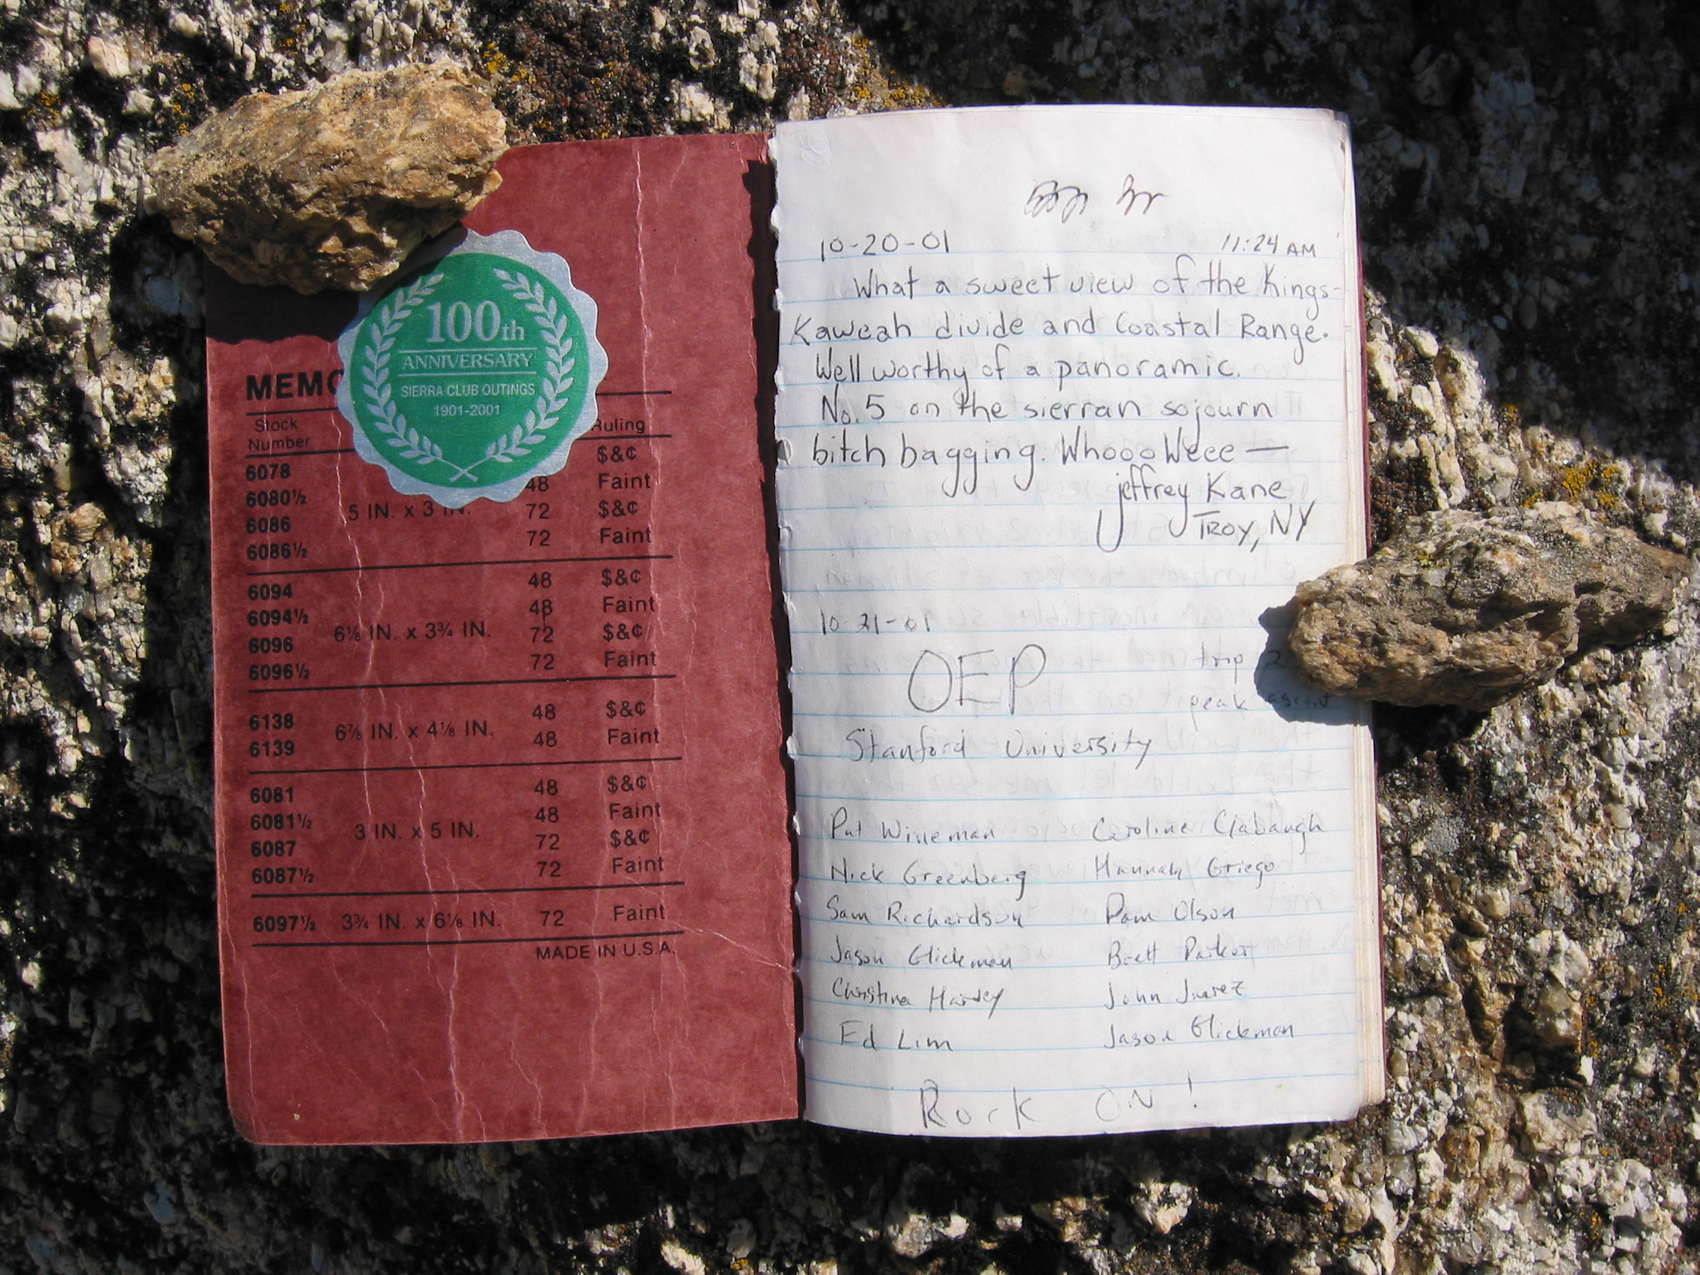 100th
ANNIVERSARY
SIERRA CLUB OUTINGS
1901-2001
MEMO
Stock
Number
Ruling
6078 $&¢
6080½ 5 IN. x 3 IN. 48 Faint
6086 72 $&¢
6086½ 72 Faint
6094 48 $&¢
6094½ 48 Faint
6096 6⅛ IN. x 3¾ IN. 72 $&¢
6096½ 72 Faint
6138 6⅞ IN. x 4⅛ IN. 48 $&¢
6139 48 Faint
6081 48 $&¢
6081½ 3 IN. x 5 IN. 48 Faint
6087 72 $&¢
6087½ 72 Faint
6097½ 3¾ IN. x 6⅛ IN. 72 Faint
MADE IN U.S.A.
10-20-01 11:24 AM
What a sweet view of the Kings-
Kaweah divide and Coastal Range.
Well worthy of a panoramic.
No. 5 on the sierran sojourn
bitch bagging. Whooo Weee —
jeffrey Kane
Troy, NY
10-21-01
OEP trip 2
peak ascent
Stanford University
Pat Wineman Caroline Clabaugh
Nick Greenberg Hannah Griego
Sam Richardson Pam Olson
Jason Glickman Brett Parker
Christina Hardy John Juarez
Ed Lim Jason Glickman
Rock ON!